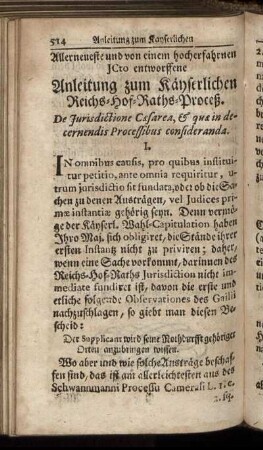 514 Anleitung zum Kayserlichen
Allerneueste und von einem hocherfahrnen
JCto entworffene
Anleitung zum Käyserlichen
Reichs-Hof-Raths-Proceß.
De Jurisdictione Cæsarea, & quæ in de-
cernendis Processibus consideranda.
I.
IN omnibus causis, pro quibus institui-
tur petitio, ante omnia requiritur, u-
trum jurisdictio sit fundata, vdet ob die Sa-
chen zu denen Austrägen, vel Judices pri-
mæ instantiæ gehörig seyn. Denn vermö-
ge der Käyserl. Wahl-Capitulation haben
Ihro Maj. sich obligiret, die Stände ihrer
ersten Instanz nicht zu priviren; daher,
wenn eine Sache vorkommt, darinnen des
Reichs-Hof-Raths Jurisdiction nicht im-
mediate fundiret ist, davon die erste und
etliche folgende Observationes des Gailii
nachzuschlagen, so giebt man diesen Be-
scheid:
Der Supplicant wird seine Nothdurfft gehöriger
Orten anzubringen wissen.
Wo aber und wie solche Austräge beschaf-
fen sind, das ist am allerleichtesten aus des
Schwannmanni Processu Camerali L. 1. c.
2. sq.